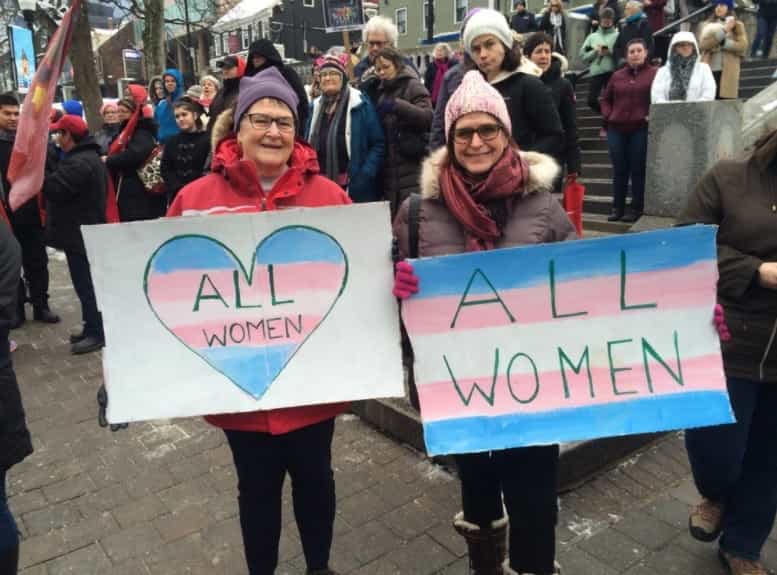 ALL
WOMEN
ALL
WOMEN